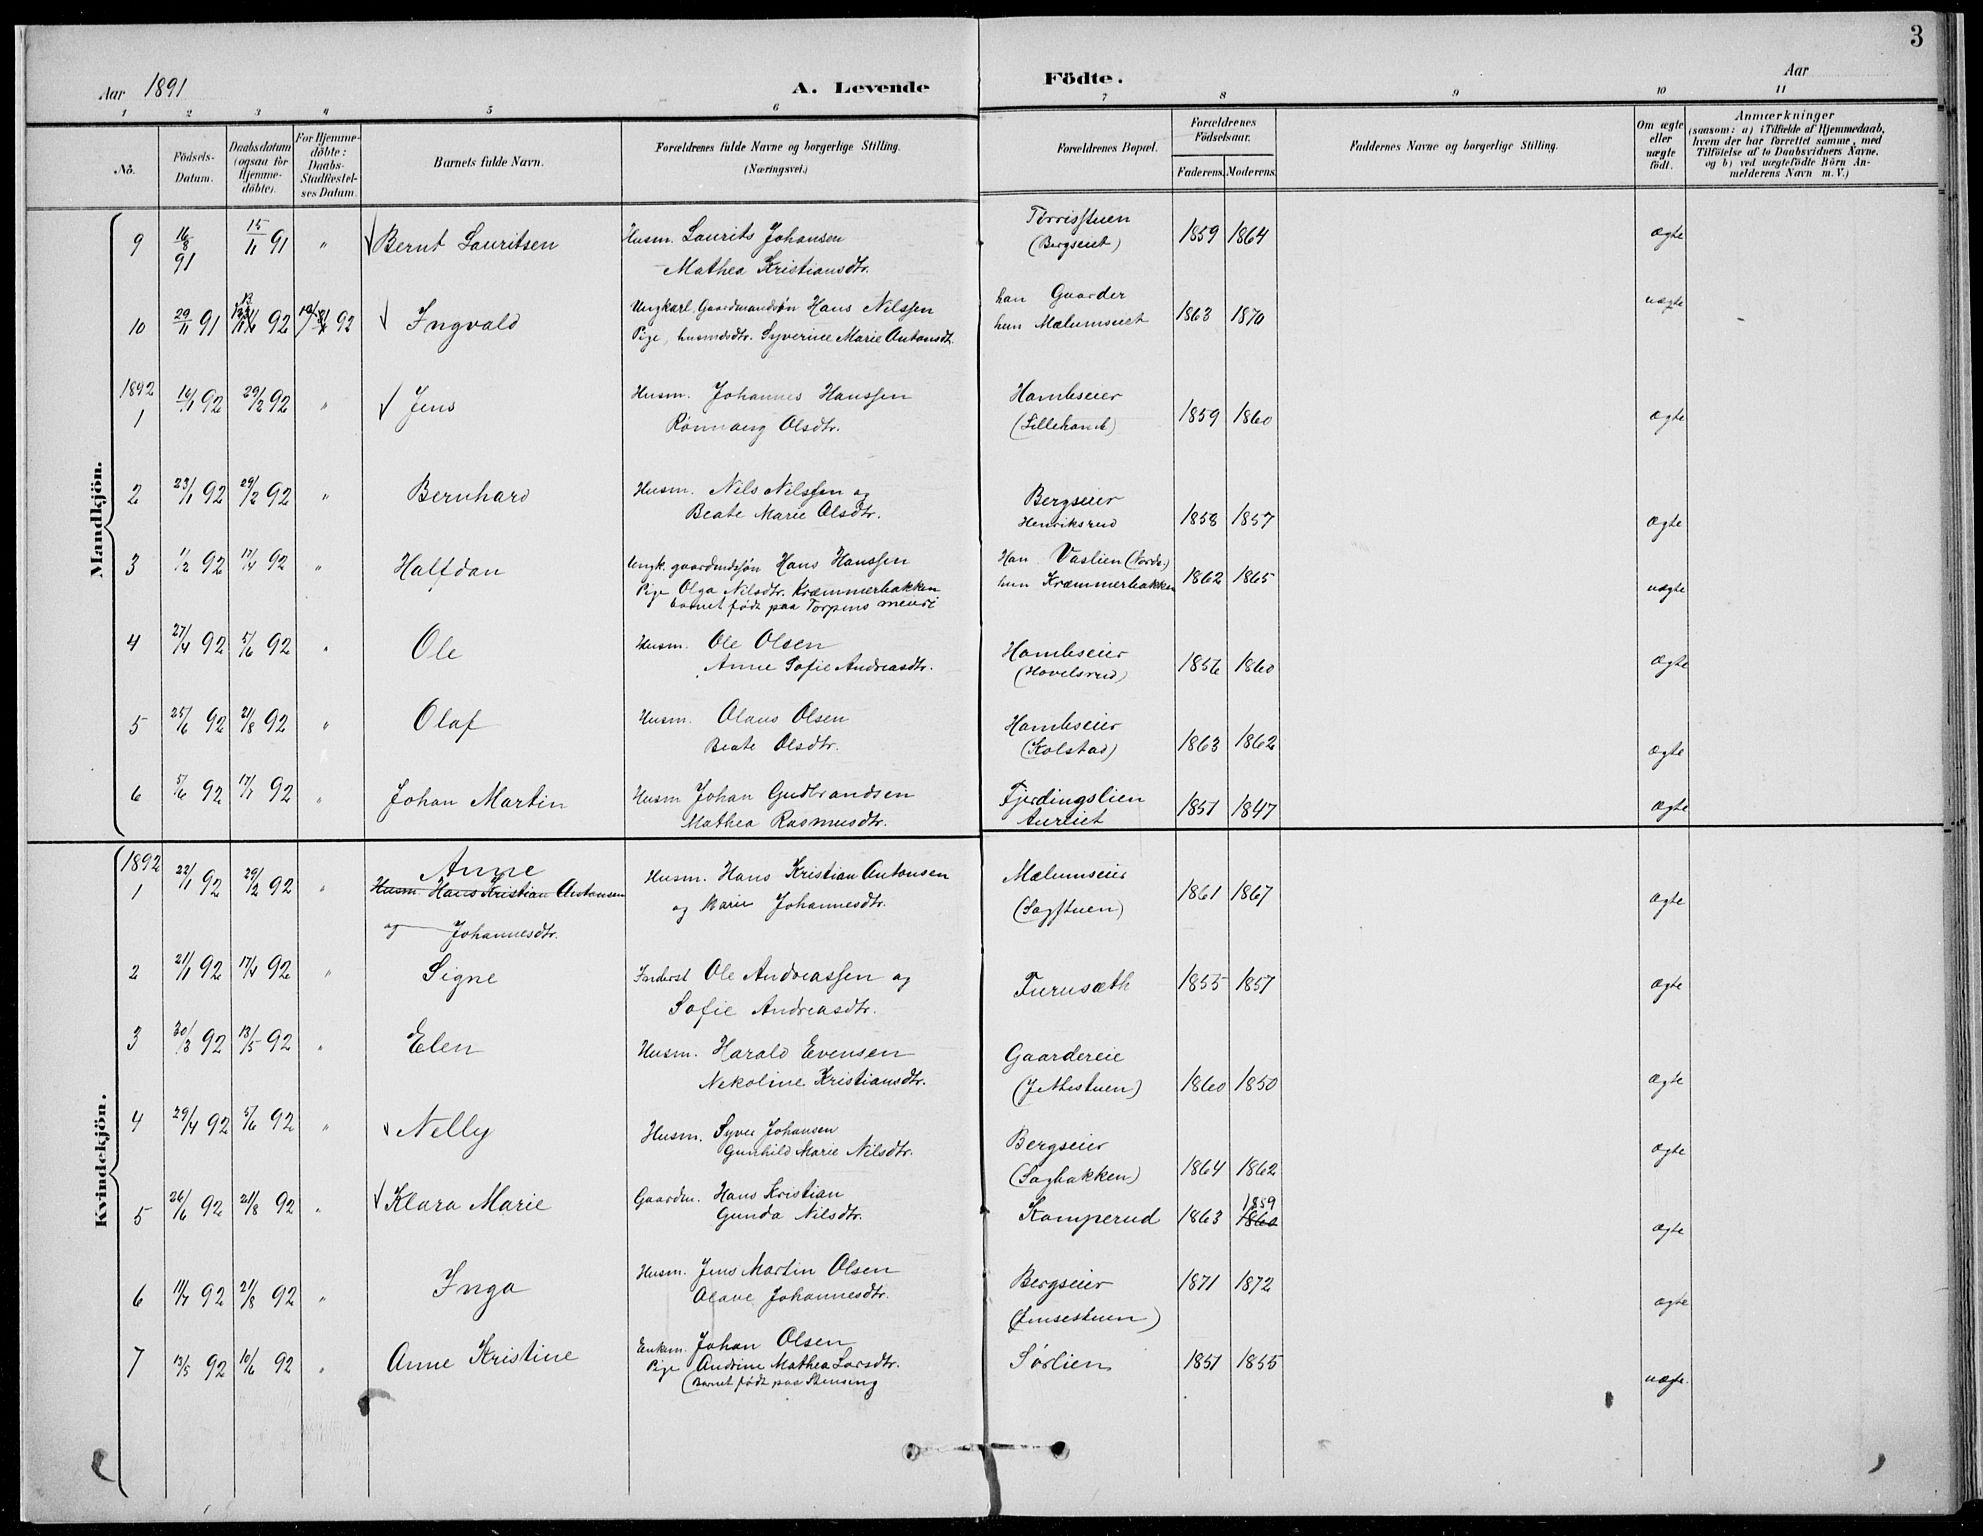 3
Aar 1891
A. Levende Födte.
Aar
1 2 3 4 5 6 7 8 9 10 11
No. Födsels-Datum. Daabsdatum (ogsaa for Hjemmedöbte). For Hjemmedöbte: Daabs-Stadfæstelses Datum. Barnets fulde Navn. Forældrenes fulde Navne og borgerlige Stilling. (Næringsvei.) Forældrenes Bopæl. Forældrenes Födselsaar. Faderens. Moderens. Faddernes Navne og borgerlige Stilling. Om ægte eller uægte födt. Anmærkninger (saasom: a) i Tilfælde af Hjemmedaab, hvem der har forrettet samme, med Tilföielse af to Daabsvidners Navne, og b) ved uægtefödte Börn Anmelderens Navn m. V.)
Mandkjön.
9 16/8 91 15/11 91 " Bernt Lauritsen Husm. Laurits Johansen Tørrisstuen 1859 1864 ægte
Mathea Kristiansdtr. (Bergseiet)
10 29/11 91 92 92 Ingvald Ungkarl, Gaardmandsøn Hans Nilssen han Gaarder 1863 1870 uægte
Pige, husmdsdtr. Syverine Marie Antonsdt. hun Mælumseiet
1892
1 16/1 92 29/2 92 " Jens Husm. Johannes Hanssen Hambseier 1859 1860 ægte
Rønnaug Olsdtr. (Lillehamb)
2 23/1 92 29/2 92 " Bernhard Husm. Nils Nilssen og Bergseier 1858 1857 ægte
Beate Marie Olsdtr. Henriksrud
3 1/2 92 17/4 92 " Halfdan Ungk. gaardmdssøn Hans Hanssen Han Vaslien (Nordr.) 1862 1865 uægte
Pige Olga Nilsdtr. Kræmmerbakken hun Kræmmerbakken
barnet født paa Torpens meieri
4 27/4 92 5/6 92 " Ole Husm. Ole Olsen Hambseier 1856 1860 ægte
Anne Sofie Andreasdtr. (Hovelsrud)
5 25/6 92 21/8 92 " Olaf Husm. Olaus Olsen Hambseier 1863 1862 ægte
Beate Olsdtr. (Kolstad)
6 5/6 92 17/7 92 " Johan Martin Husm Johan Gudbrandsen Fjerdingslien 1851 1847 ægte
Mathea Rasmusdtr. Aureiet
Kvindekjön.
1892
1 22/1 92 29/2 92 " Anne Husm. Hans Kristian Antonsen Mælumseier 1861 1867 ægte
Husm. Hans Kristian Antonsen og Marie Johannesdtr. (Sagstuen)
og Johannesdtr.
2 21/1 92 17/4 92 " Signe Inderst Ole Andreassen og Furusæth 1855 1857 ægte
Sofie Andreasdtr.
3 30/3 92 13/5 92 " Elen Husm. Harald Evensen Gaardereie 1860 1850 ægte
Nekoline Kristiansdtr. (Jethestuen)
4 29/4 92 5/6 92 " Nelly Husm. Syver Johansen Bergseier 1864 1862 ægte
Gunhild Marie Nilsdtr. (Sagbakken)
5 26/6 92 21/8 92 " Klara Marie Gaardm. Hans Kristian Kamperud 1863 1860 1859 ægte
Gunda Nilsdtr.
6 11/7 92 21/8 92 " Inga Husm. Jens Martin Olsen Bergseier 1871 1872 ægte
Olave Johannesdtr. (Jensestuen)
7 13/5 92 10/6 92 " Anne Kristine Enkem. Johan Olsen Sørlien 1851 1855 uægte.
Pige Andrine Mathea Larsdtr.
(Barnet født paa Stensing